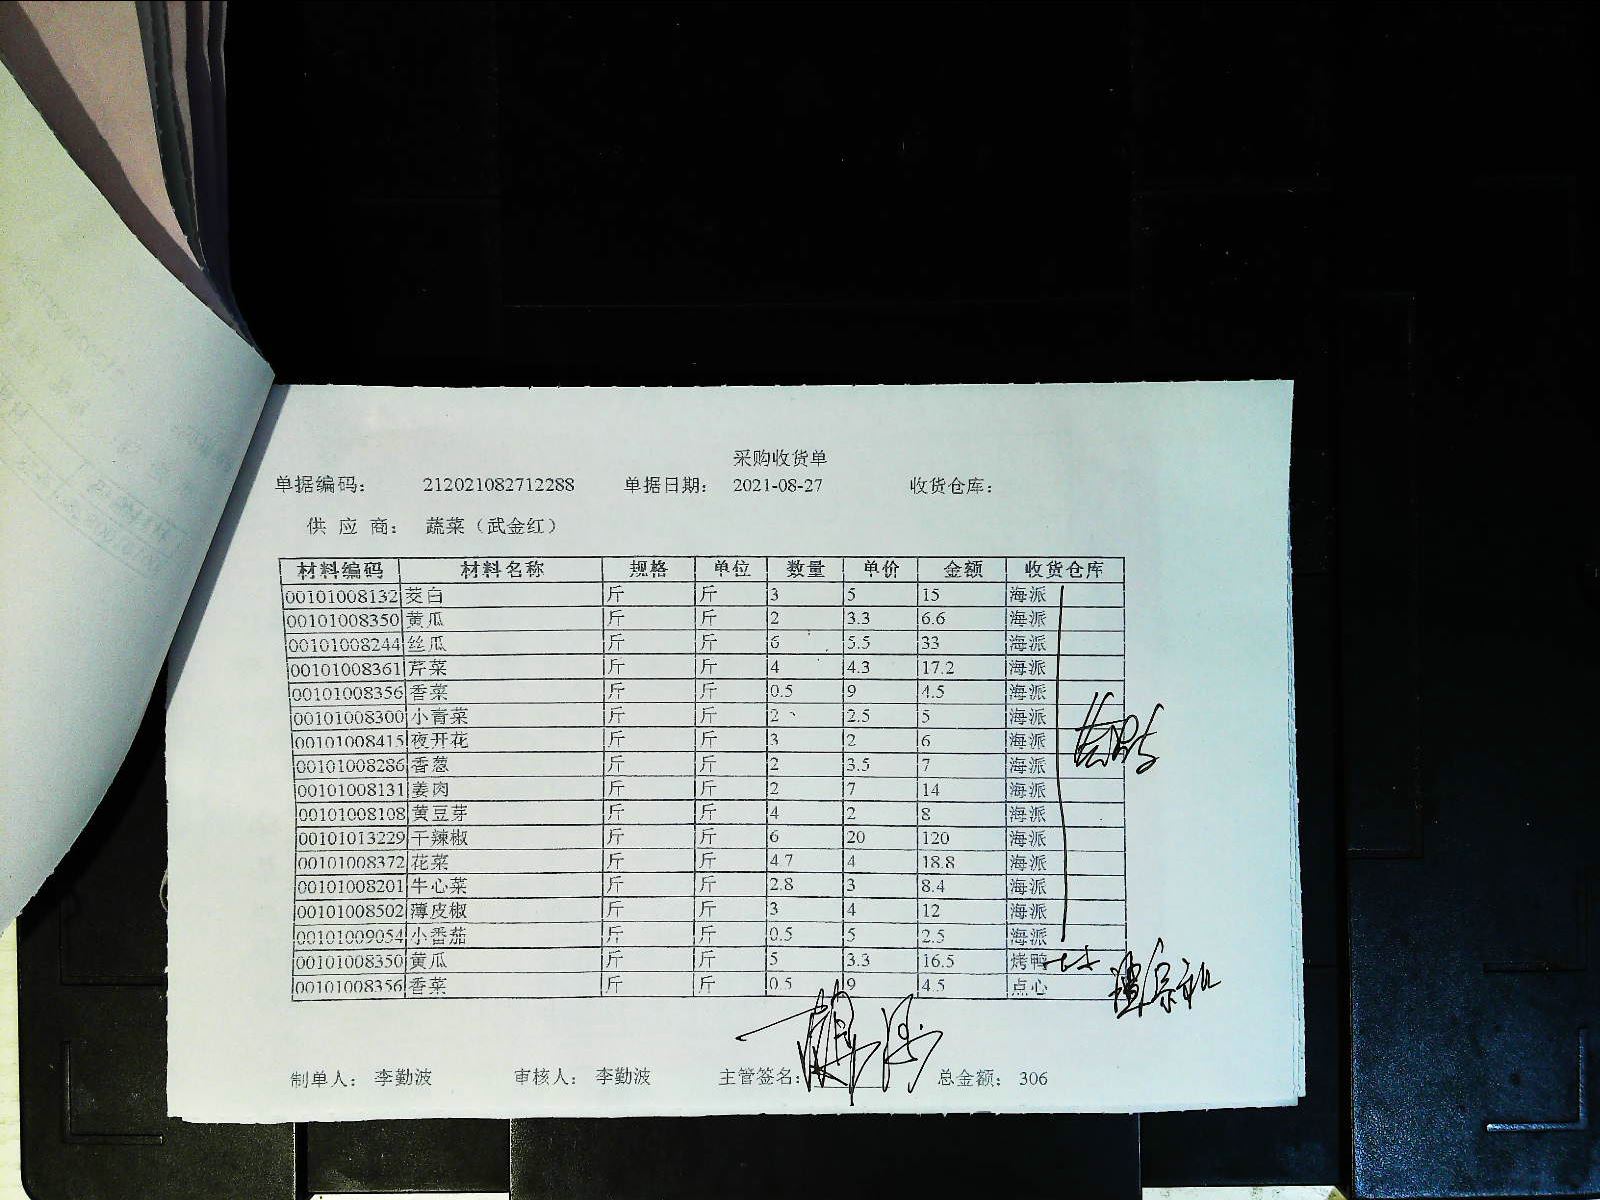 采购收货单
单据编码： 212021082712288 单据日期： 2021-08-27 收货仓库：
供 应 商： 蔬菜（武金红）
材料编码 材料名称 规格 单位 数量 单价 金额 收货仓库
00101008132 茭白 斤 斤 3 5 15 海派
00101008350 黄瓜 斤 斤 2 3.3 6.6 海派
00101008244 丝瓜 斤 斤 6 5.5 33 海派
00101008361 芹菜 斤 斤 4 4.3 17.2 海派
00101008356 香菜 斤 斤 0.5 9 4.5 海派
00101008300 小青菜 斤 斤 2 2.5 5 海派
00101008415 夜开花 斤 斤 3 2 6 海派
00101008286 香葱 斤 斤 2 3.5 7 海派
00101008131 姜肉 斤 斤 2 7 14 海派
00101008108 黄豆芽 斤 斤 4 2 8 海派
00101013229 干辣椒 斤 斤 6 20 120 海派
00101008372 花菜 斤 斤 4.7 4 18.8 海派
00101008201 牛心菜 斤 斤 2.8 3 8.4 海派
00101008502 薄皮椒 斤 斤 3 4 12 海派
00101009054 小番茄 斤 斤 0.5 5 2.5 海派
00101008350 黄瓜 斤 斤 5 3.3 16.5 烤鸭
00101008356 香菜 斤 斤 0.5 9 4.5 点心
制单人： 李勤波 审核人： 李勤波 主管签名： 总金额： 306